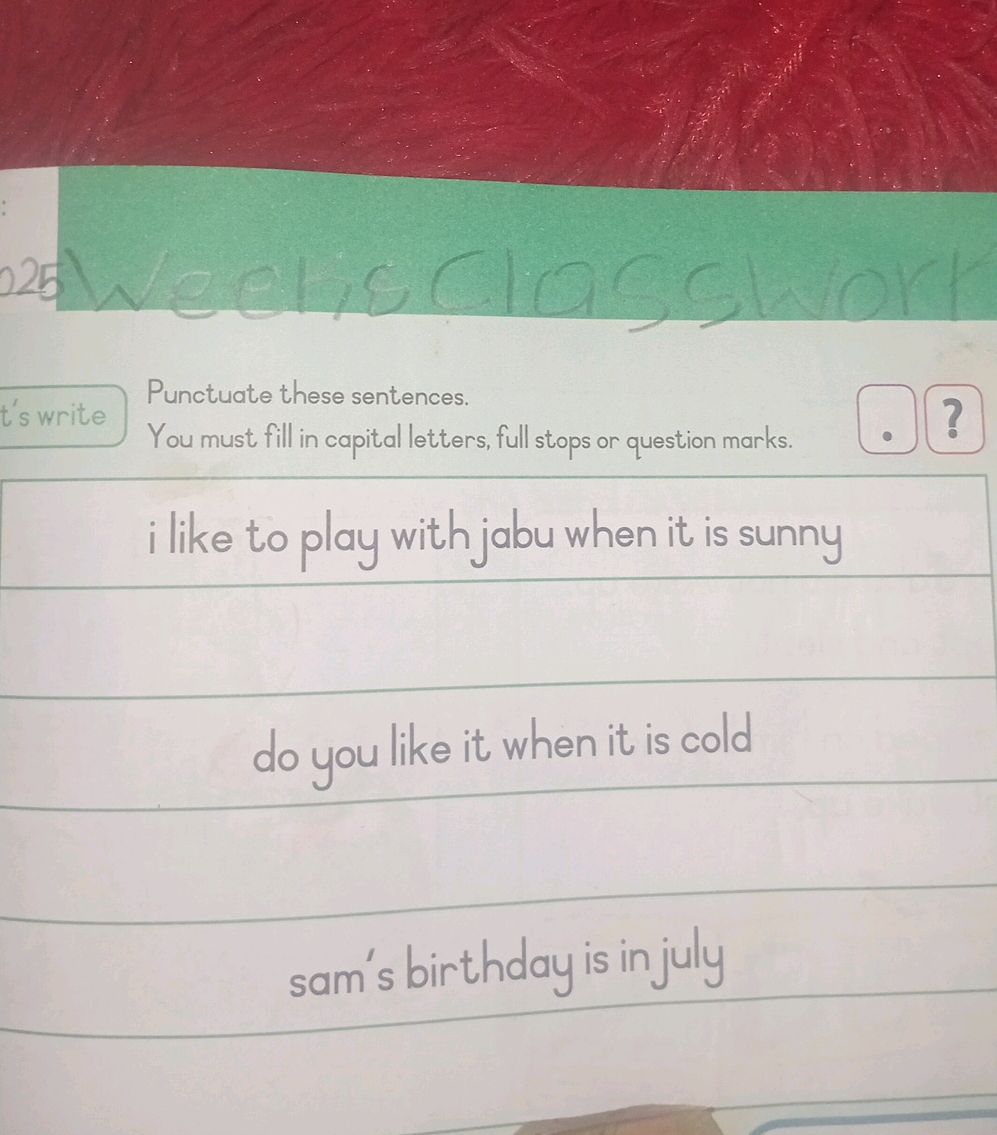 :
025 Week 8 Classwork
t's write
Punctuate these sentences.
You must fill in capital letters, full stops or question marks.
. ?
i like to play with jabu when it is sunny
do you like it when it is cold
sam's birthday is in july